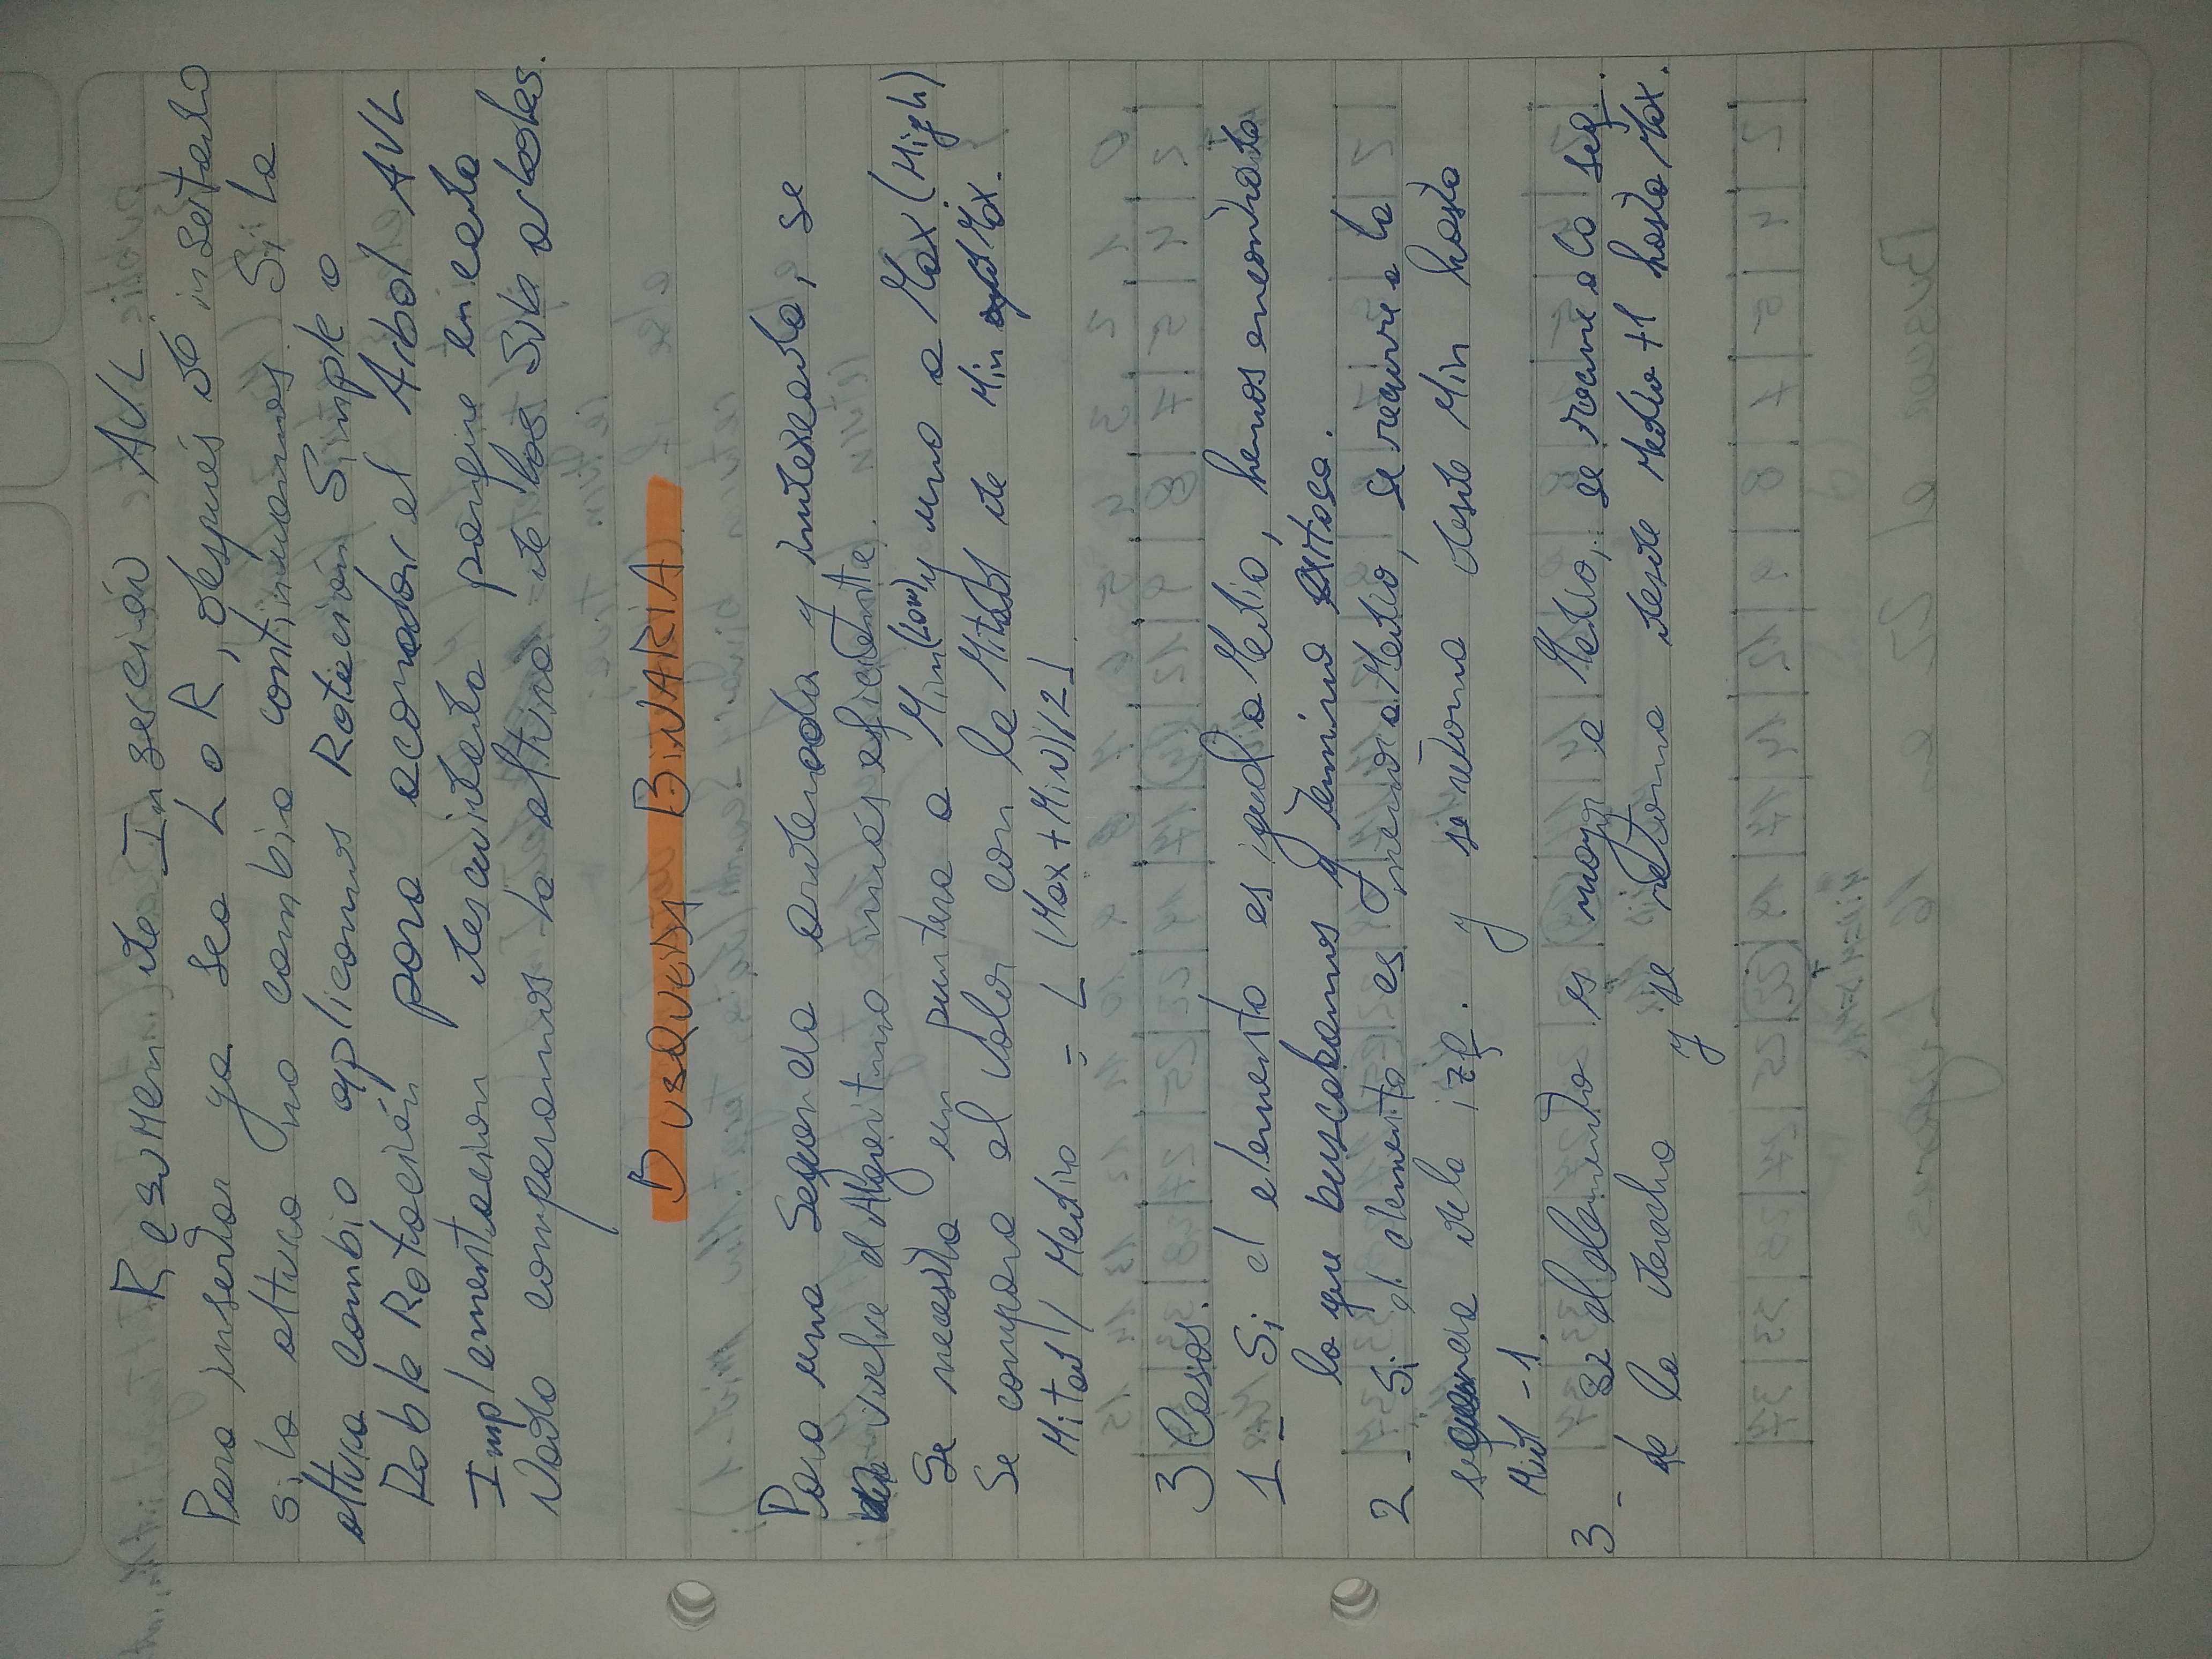 Resumen de Inserción AVL.
Para insertar ya sea L o R, después de insertado
si la altura no cambio continuamos. Si la
altura cambio aplicamos Rotación Simple o
Doble Rotación para acomodar el Arbol AVL
Implementacion descuidada porque en cada
Nodo comparamos la altura de los Sub arboles.
BUSQUEDA BINARIA.
Para una Sequencia ordenada y indexeada, se
vuelve el Algoritmo más eficiente.
Se necesita un puntero a Min (Low) y uno a Max (High)
Se compara el valor con la Mitad de Min y Max.
Mitad / Medio = ⌊ (Max + MiN) / 2 ⌋.
3 Casos.
1 - Si el elemento es igual a Medio, hemos encontrado
lo que buscabamos y termina exitosa.
2 - Si el elemento es menor a Medio, se recurre a la
sequencia de la izq. y se retorna desde Min hasta
Mid - 1.
3 - , si el elemento es mayor a Medio, se recurre a la seq.
de la derecha y se retorna desde Medio + 1 hasta Max.